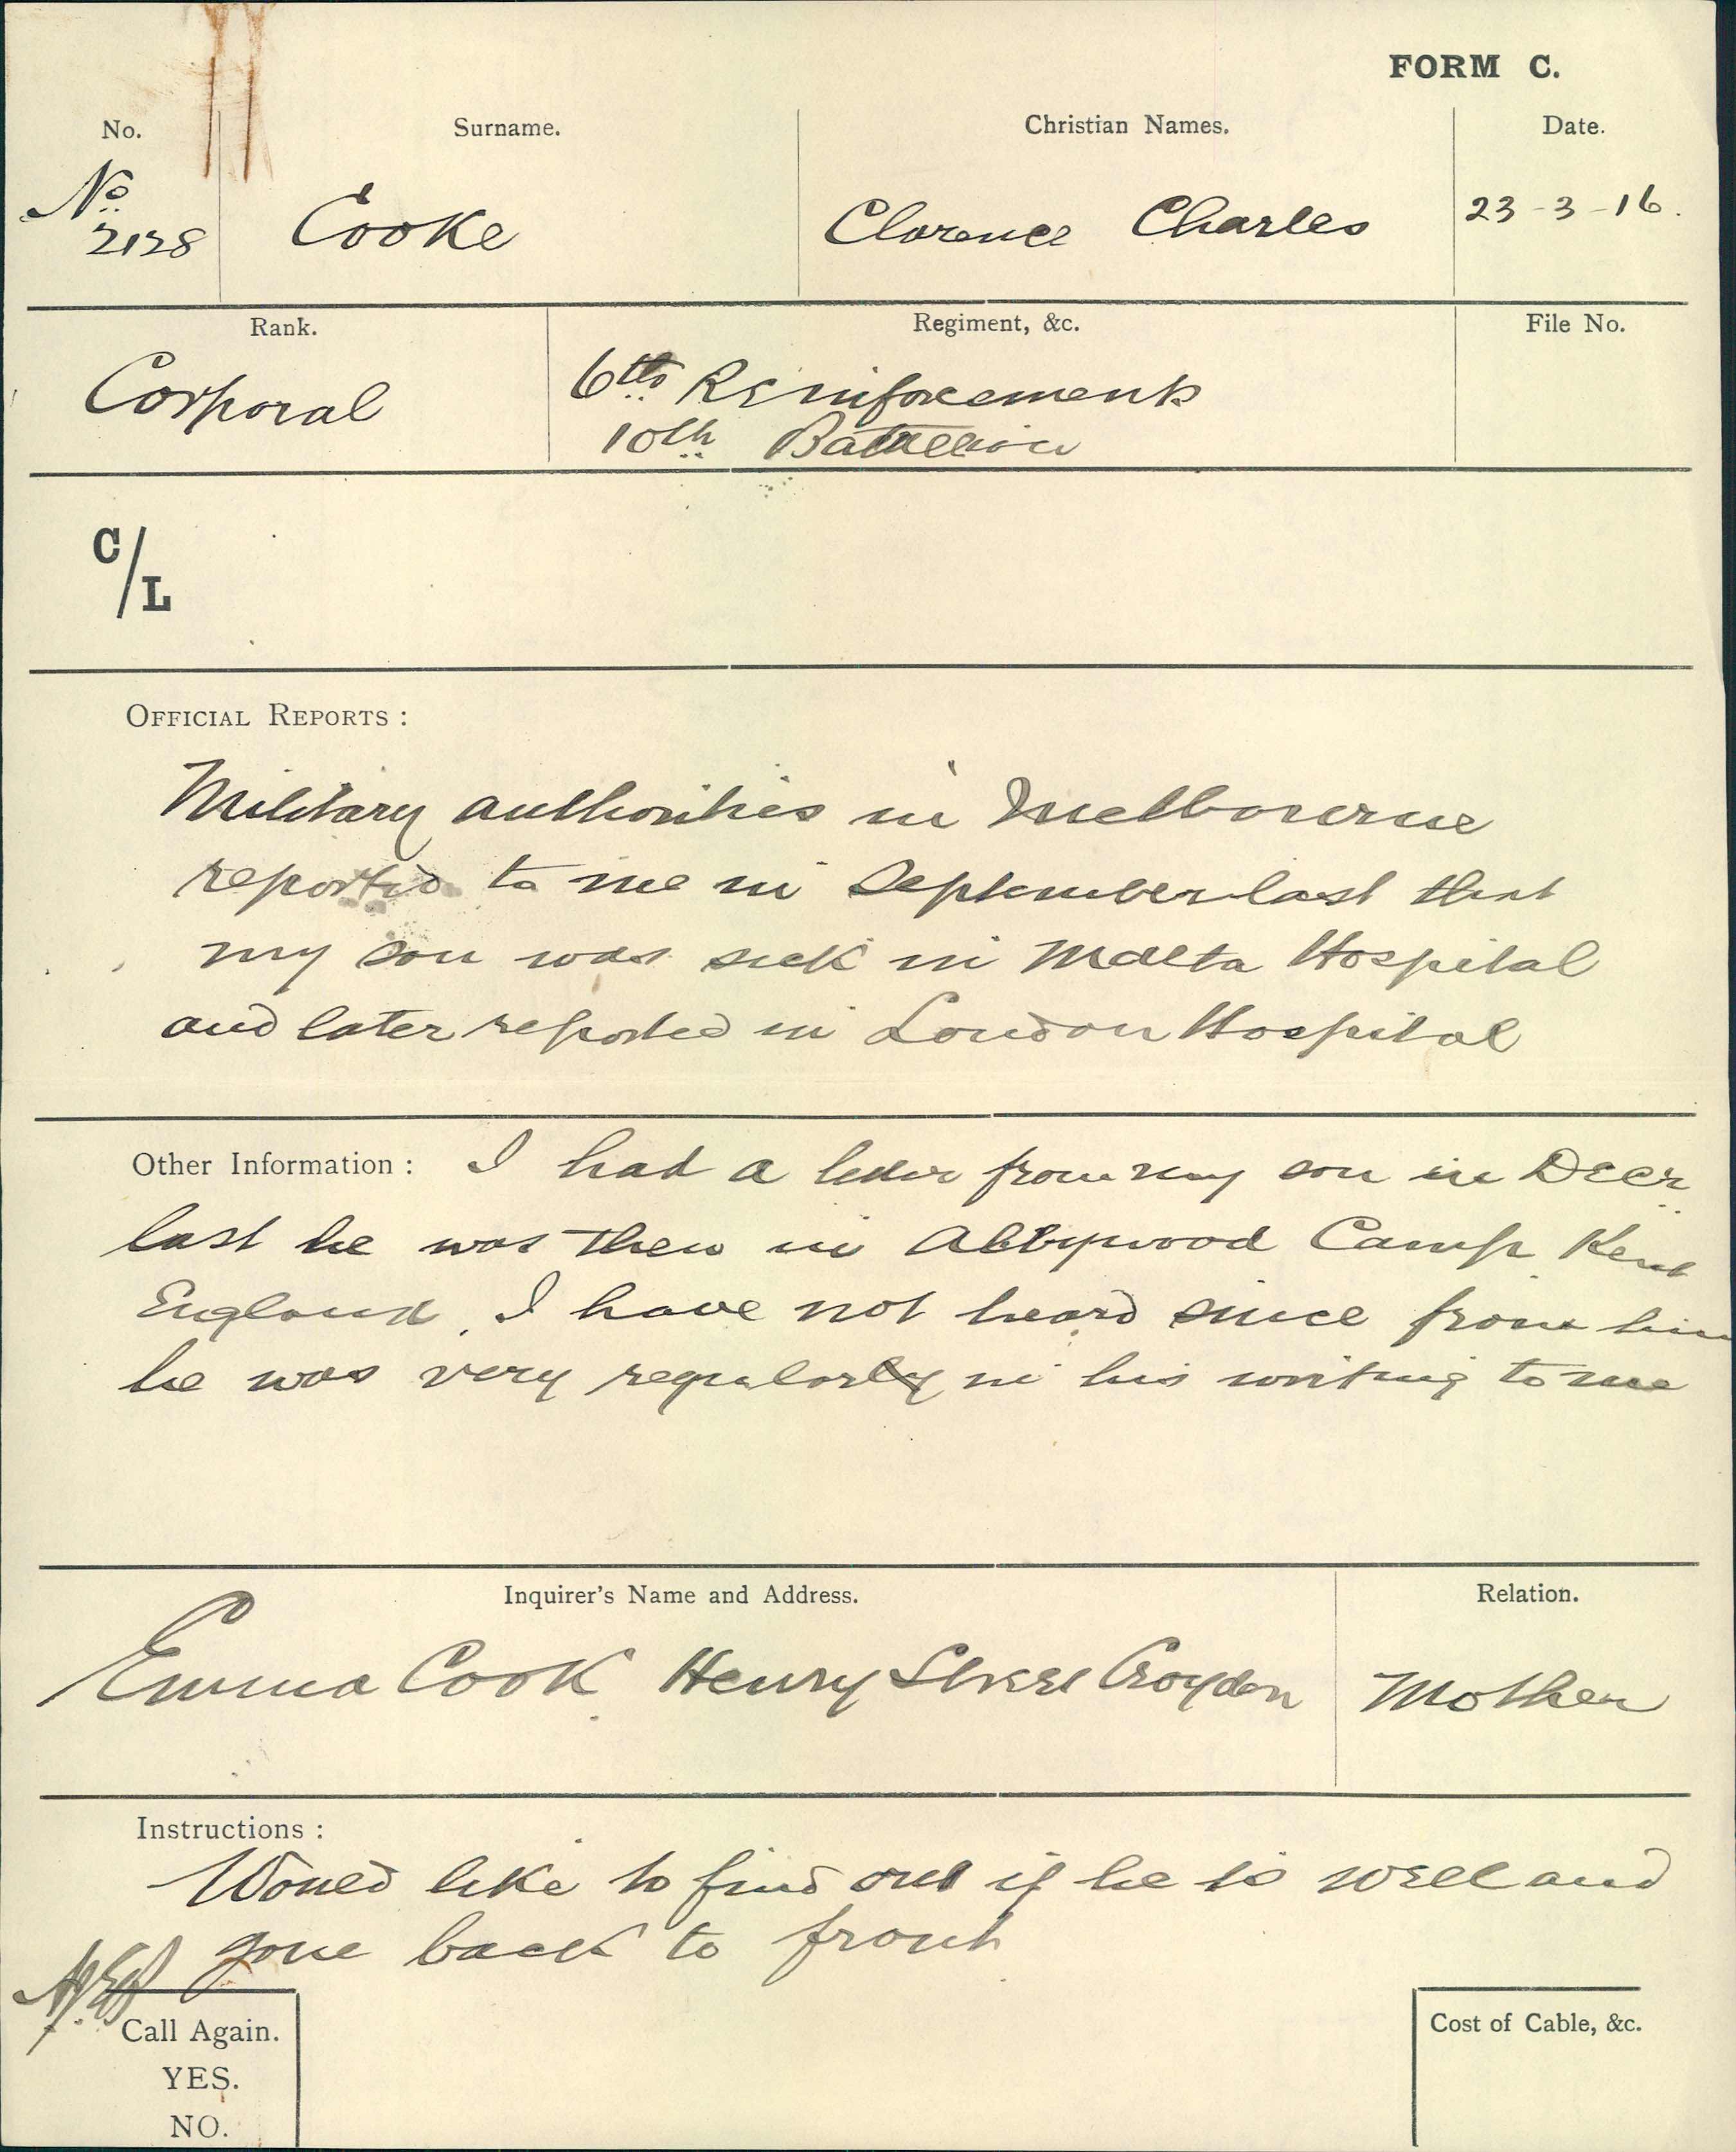 FORM C.
No. Surname. Christian Names. Date.
No 2128 Cooke Clarence Charles 23-3-16.
Rank. Regiment, &c. File No.
Corporal 6th Reinforcements
10th Battallion
C/L
OFFICIAL REPORTS :
Military authorities in Melbourne
reported to me in September last that
my son was sick in Malta Hospital
and later reported in London Hospital
Other Information : I had a letter from my son in Decr
last he was then in Abbywood Camp Kent
England. I have not heard since from him
he was very regularly in his writing to me
Inquirer's Name and Address. Relation.
Emma Cook Henry Street Croydon Mother
Instructions :
Would like to find out if he is well and
gone back to front
Call Again.
YES.
NO.
Cost of Cable, &c.